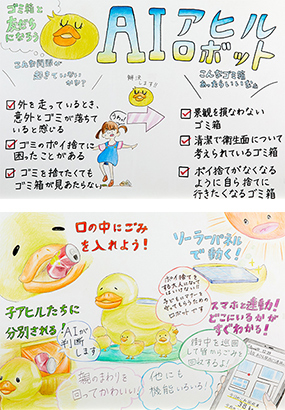 ゴミ箱と
友だちに
なろう
AIアヒル
ロボット
こんな問題が
起きていない
かな？
解決
します!!
こんなゴミ箱
あったらいいな
外を走っているとき、
意外とゴミが落ちて
いると感じる
ゴミのポイ捨てに
困ったことがある
ゴミを捨てたくても
ゴミ箱が見あたらない
景観を損なわない
ゴミ箱
清潔で衛生面について
考えられているゴミ箱
ポイ捨てがなくなる
ように自ら捨てに
行きたくなるゴミ箱
口の中にごみ
を入れよう！
ソーラーパネル
で動く！
子アヒルたちに
分別される
AIが
判断
します
ポイ捨てを
ロボットです
スマホと連動！
どこにいるかが
すぐわかる！
街中を巡回
して皆からごみを
回収するよ！
親のまわりを
回っててかわいい！
他にも
機能いろいろ！